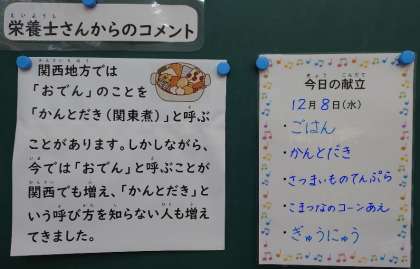 栄養士さんからのコメント
関西地方では
「おでん」のことを
「かんとだき（関東煮）」と呼ぶ
ことがあります。しかしながら、
今では「おでん」と呼ぶことが
関西でも増え、「かんとだき」と
いう呼び方を知らない人も増え
てきました。
今日の献立
12月8日(水)
・ごはん
・かんとだき
・さつまいものてんぷら
・こまつなのコーンあえ
・ぎゅうにゅう